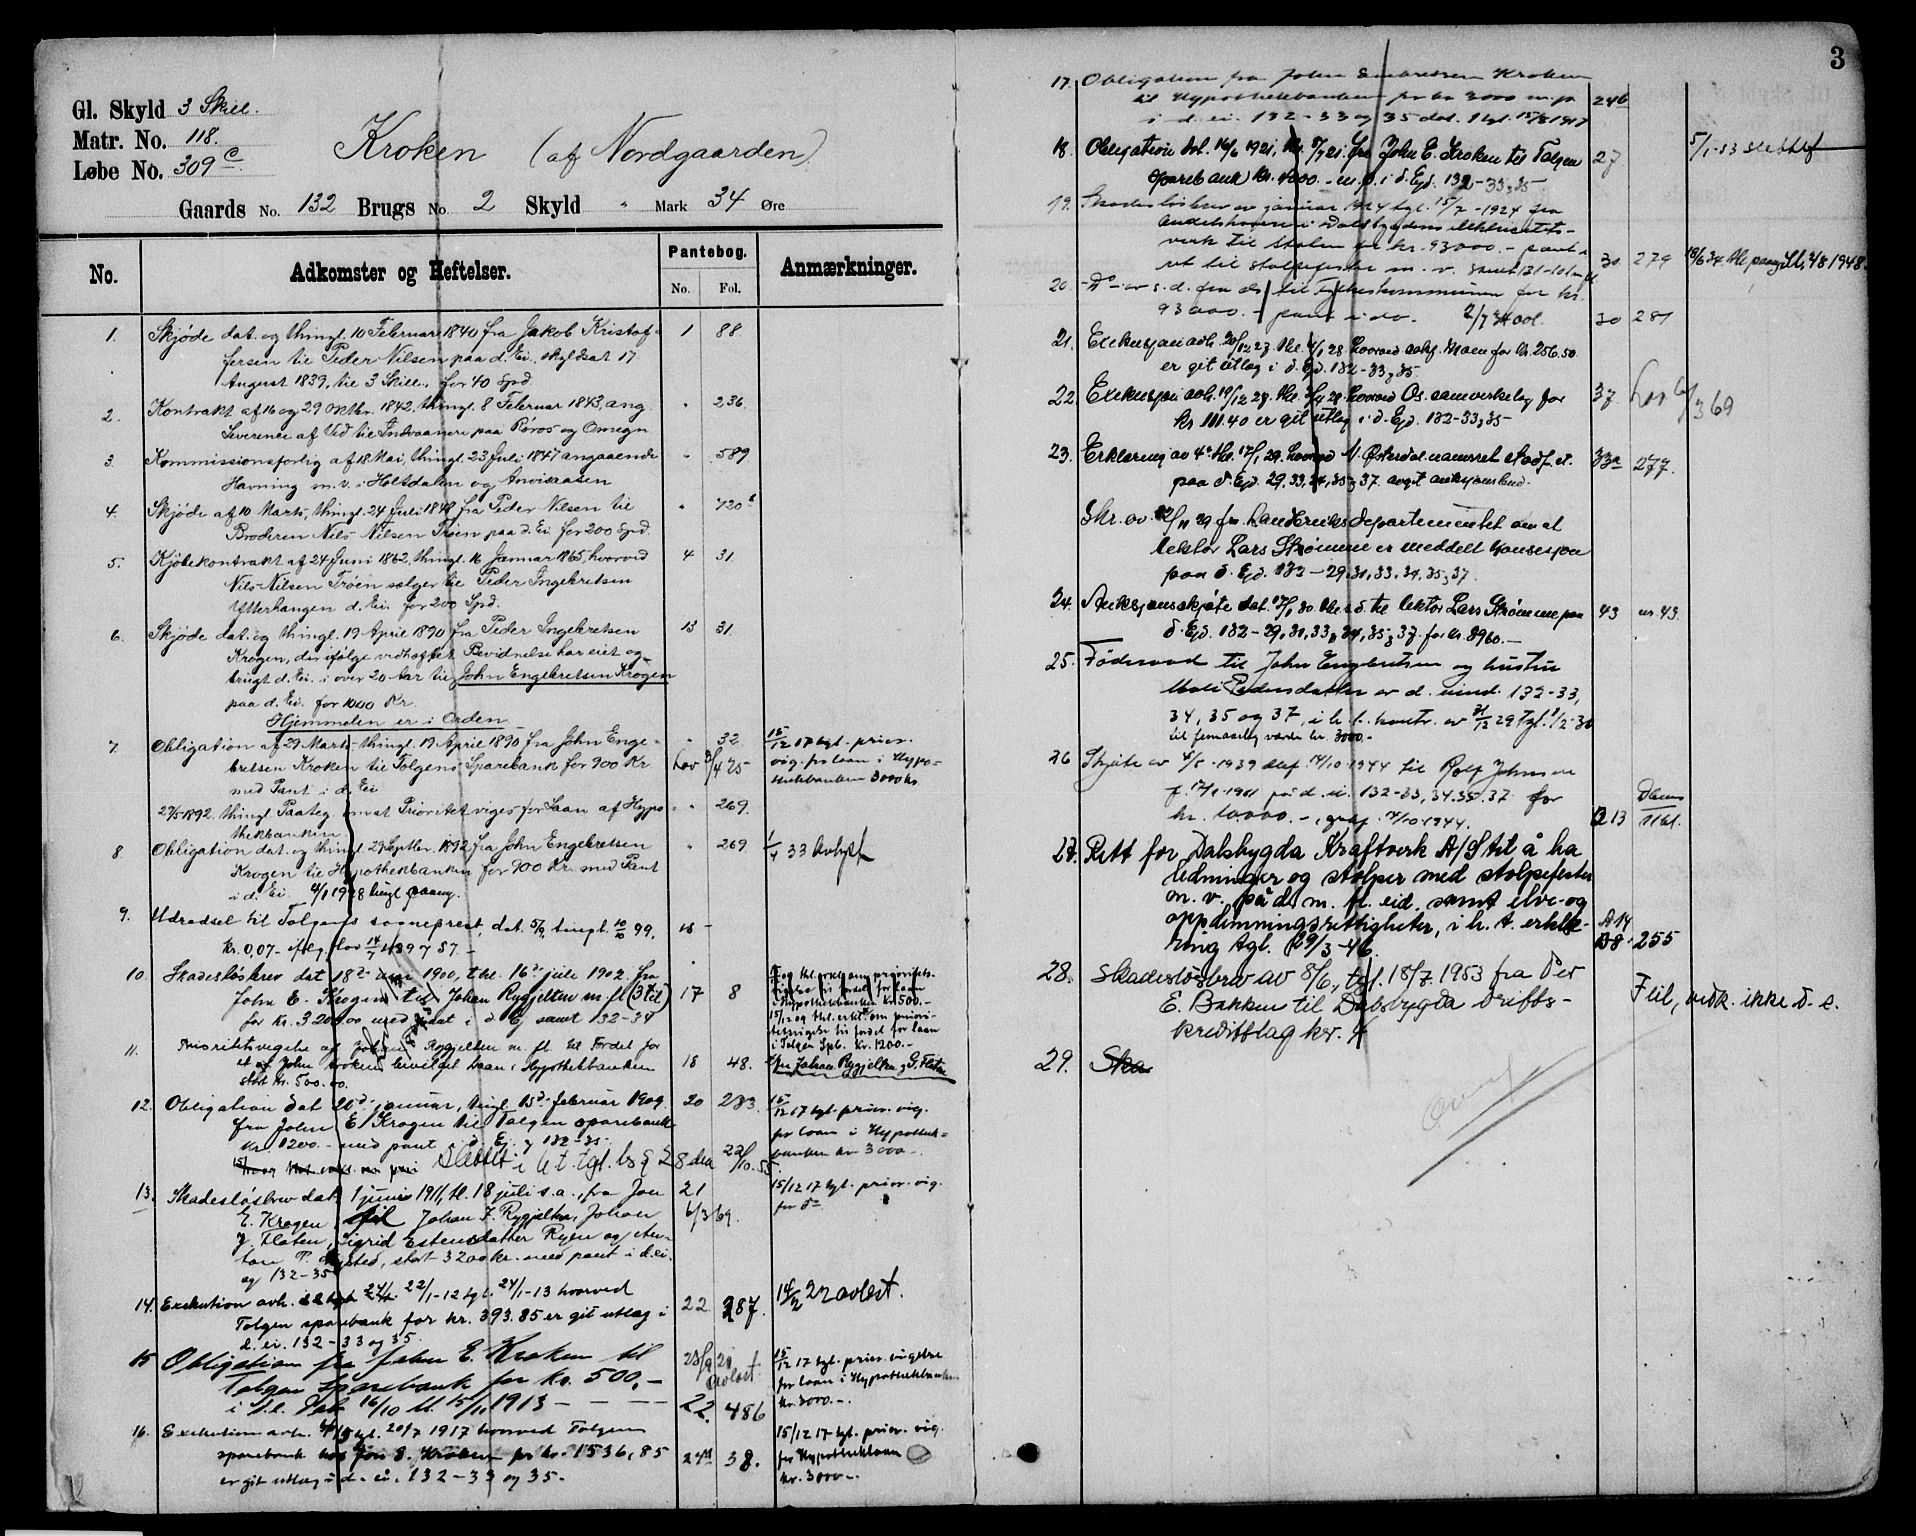 3
Gl. Skyld 3 Skill.
Matr. No. 118.
Løbe No. 309 c.
Kroken (af Nordgaarden)
Gaards No. 132 Brugs No. 2 Skyld " Mark 34 Øre
No. Adkomster og Heftelser. Pantebog. No. Fol. Anmærkninger.
1. Skjøde dat. og thingl. 10 Februar 1840 fra Jakob Kristof- 1 88
fersen til Peder Nilsen paa d. Ei., skyldsat 17
August 1839, til 3 Skill., for 40 Spd.
2. Kontrakt af 16 og 29 Oktbr. 1842, thingl. 8 Februar 1843, ang. " 236.
Leverence af Ved til Indvaanere paa Røros og Omegn
3. Kommissionsforlig af 18 Mai, thingl. 23 Juli 1847 angaaende " 589
Havning m. v. i Holtdalen og
4. Skjøde af 10 Marts, thingl. 24 Juli 1848 fra Peder Nilsen til " 720 b
Broderen Nils Nilsen Trøen paa d. Ei for 200 Spd.
5. Kjøbekontrakt af 24 Juni 1862, thingl. 16 Januar 1865, hvorved 4 31.
Nils Nilsen Trøen sælger til Peder Ingebretsen
Ytterhangen d. Ei. for 200 Spd.
6. Skjøde dat. og thingl. 19 April 1890 fra Peder Ingebretsen 13 31.
Krogen, der ifølge vidhæftet Bevidnelse har eiet og
brugt d. Ei. i over 20 Aar til John Engebretsen Krogen
paa d. Ei. for 1000 Kr.
Hjemmelen er i Orden
7. Obligation af 29 Marts, thingl. 19 April 1890 fra John Enge- " 32.
bretsen Kroken til Tolgens Sparebank for 900 Kr
med Pant i d. Ei
15/12 17 tgl. prior.
vig. for laan i Hypo-
thekbanken 3000 kr
27/5 1892. thingl. Paateg. om at Prioritet viges for Laan af Hypo- " 269.
thekbanken.
8. Obligation dat. og thingl. 29 Septbr. 1892 fra John Engebretsen " 269
Krogen til Hypothekbanken for 900 Kr. med Pant
i d. Ei. 4/1 1928 tingl. paateg.
1/4 33 Avlyst
9. Udredsel til Tolgens sogneprest, dat. 5/9, tingl. 10/10 99, 16 -
kr. 0,07
10 Skadesløsbrev dat 18de mai 1900, thl. 16de juli 1902. fra
John E. Krogen til Johan Rygjelten m fl (3 til) 17 8
for kr. 3200,00 med pant i d Ej samt 132-34
11. Prioritetsvigelse af Johan Rygjelten m. fl. til Fordel for
et af John Kroken bevilget Laan i Hypothekbanken 18 48.
stort kr. 500.00.
12. Obligation dat 20de januar, tingl. 15de februar 1909. 20 233.
fra John E. Krogen til Tolgen sparebank
kr. 1200.- med pant i d. Ej. og 132-35.
15/12 17 tgl. prior. vig.
for laan i Hypothek-
banken kr 3000.-
Slettet i h. t. tgl. 22/10.55.
13. Skadesløsbrev dat. 1 juni 1911, tl. 18 juli s. a., fra Jon 21
E. Krogen til Johan J. Rygjelten, Johan 6/3 69.
J. Floten, Sigrid Estensdatter Ryen og
ton P. , stort 3200 kr. med pant i d. ei.
og 132-35
15/12 17 tgl. prior. vig.
for do
14. Exekution avh. 22/1-12 tgl. 24/1-13 hvorved
Tolgen sparebank for kr. 393.85 er git utlæg i 22 287.
d. ei. 132-33 og 35.
14/2 22 avlest.
15 Obligation fra John E. Kroken til
Tolgen Sparebank for kr. 500,- Avlest
i d. e. Dat. 16/10 tl. 15/11 1913 - - - - 22. 486
15/12 17 tgl. prior. vigelse
for laan i Hypothekbanken
kr. 3000.-.
16. Exekution avh. tgl. 20/7 1917 hvorved Tolgen
sparebank hos Jon E. Kroken for kr. 1536,85 24 a 38.
er git utlæg i d. ei. 132-33 og 35.
15/12 17 tgl. prior. vig.
for Hypotheklaan
kr. 3000-.
17. Obligation fra John Embretsen Kroken
til Hypothekbanken for kr 3000 m. p. 24 b
i d. ei. 132-33 og 35 dat. 15/12 1917
18 Obligation dat. 16/6 1921, thl. 9/7 21. fra John E. Kroken til Tolgen 27
sparebank kr. 4000.- m. p. i d. Ejd. 132-33, 35
5/1-53 slettet
19. Skadesløsbrev av januar 1924 tgl. 15/7-1924 fra
Andelshavere i Dalsbygdens elektricitets-
verk til Staten for kr. 93000.- pant i
ret til stolpefester m. v. 30 279
20 -do- av s. d. fra ds. til Tylldalskommunen for kr.
93000.- pant i do. 2/7 34 avl. 30 281
21. Exekusjon avh. 20/12 27. thl. 4/1 28. hvorved for kr. 256.50
er git utlæg i d. Ejd. 132-33, 35
22 Exekusjon avh. 19/12 27. thl. 28. hvorved Os samvirkelag for 37. Lov 6/3 69
kr 111.40 er git utlæg i d. Ejd. 132-33, 35
23. Erklæring av 4de thl. 17/1 29. hvorved N. Østerdal namsret stadf. at 33 a 277.
paa d. Ejd. 29, 33, 34, 35, 37. avgit auksjonsbud.
Skr. av 22/11 29 fra Landbruksdepartementet om at
lektor Lars Strømme er meddelt konsesjon
paa d. Ejd. 132-29, 31, 33, 34, 35, 37.
24. Auksjonsskjøte dat. 17/1 30 thl. s. d. til lektor Lars Strømme paa 43 nr 43.
d. Ejd. 132-29, 31, 33, 34, 35, 37. for kr. 8960.-
25. Føderaad til John Engebretsen og hustru
Mali Pedersdatter av d. eiend. 132-33,
34, 35 og 37, i h. t. kontr. av 31/12 29 tgl. 1/2-30
til femaarlig værdi kr. 3000.-
26 Skjøte av 4/5-1939 14/10-1944 til Rolf Johnsen
på d. ei. 132-33, 34.35.37 for
kr. 10000.-, 14/10-1944. B 13
27. Rett for Dalsbygda Kraftverk A/S til å ha
ledninger og stolper med stolpefester
m. v. på d. m. fl. eid. samt elve- og
oppdemningsrettigheter, i h. t. erklæ- A 14
ring tgl. 29/3-46. 255
28. Skadesløsbrev av 8/6, tgl. 18/7. 1953 fra Per
E. Bakken til Dalsbygda drifts-
kredittlag kr.
Feil, vedk. ikke d. e.
29. Ska